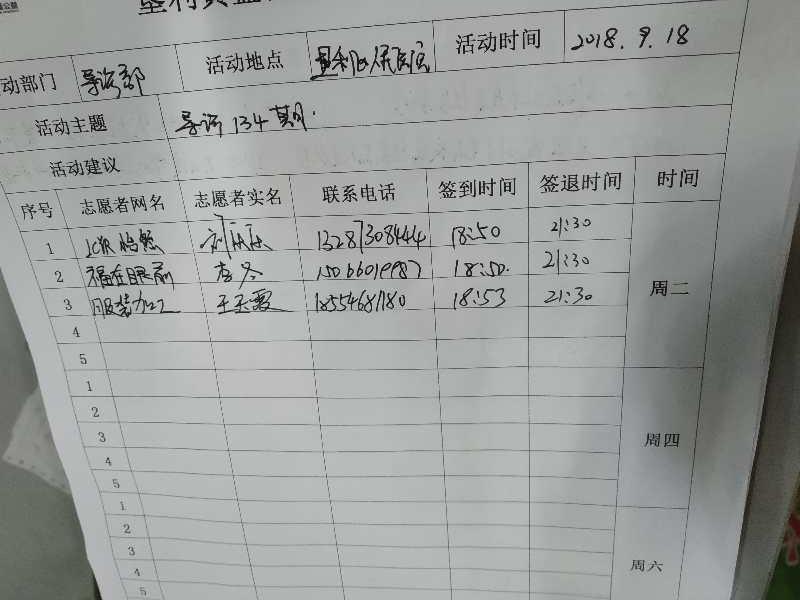 垦利
动部门 导诊部 活动地点 垦利区人民医院 活动时间 2018.9.18
活动主题 导诊134期.
活动建议
序号 志愿者网名 志愿者实名 联系电话 签到时间 签退时间 时间
1 13287308444 18:50 21:30
2 福在眼前 李冬 15066019987 18:50. 21:30 周二
3 服装加工 王玉霞 18554681780 18:53 21:30
4
5
1
2
3 周四
4
5
1
2
3 周六
4
5